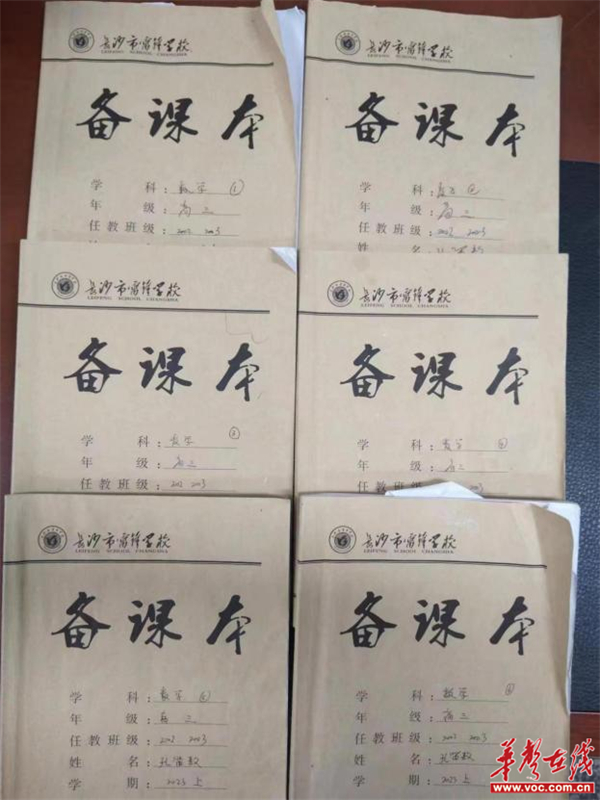 长沙市雷锋学校
LEIFENG SCHOOL CHANGSHA
备课本
学科:数学 ①
年级:高三
任教班级:2002 2003
长沙市雷锋学校
LEIFENG SCHOOL CHANGSHA
备课本
学科:数学
年级:高三
任教班级:2002 2003
姓名:
长沙市雷锋学校
LEIFENG SCHOOL CHANGSHA
备课本
学科:数学
年级:高三
任教班级:2003
长沙市雷锋学校
LEIFENG SCHOOL CHANGSHA
备课本
学科:数学
年级:高三
任教班级:2003
长沙市雷锋学校
LEIFENG SCHOOL CHANGSHA
备课本
学科:数学
年级:高三
任教班级:2002 2003
姓名:
学期:2023上
长沙市雷锋学校
LEIFENG SCHOOL CHANGSHA
备课本
学科:数学
年级:高三
任教班级:2002 2003
姓名:
学期:2023上
华声在线
www.voc.com.cn